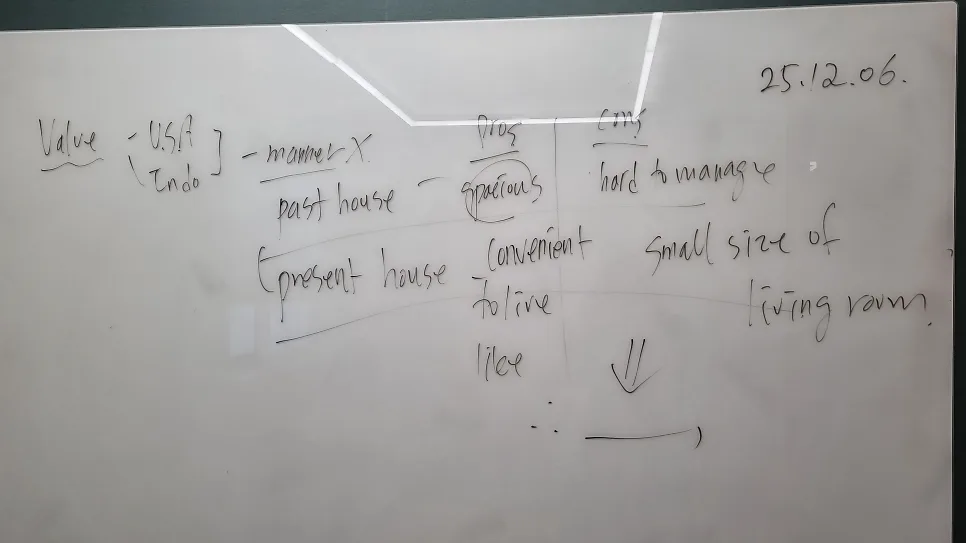 25.12.06.
Value - U.S.A ] - manner X.
\ Indo
Pros | Cons
past house - spacious | hard to manage
(present house - convenient | small size of
to live | living room.
like ⇓
∴ ———,